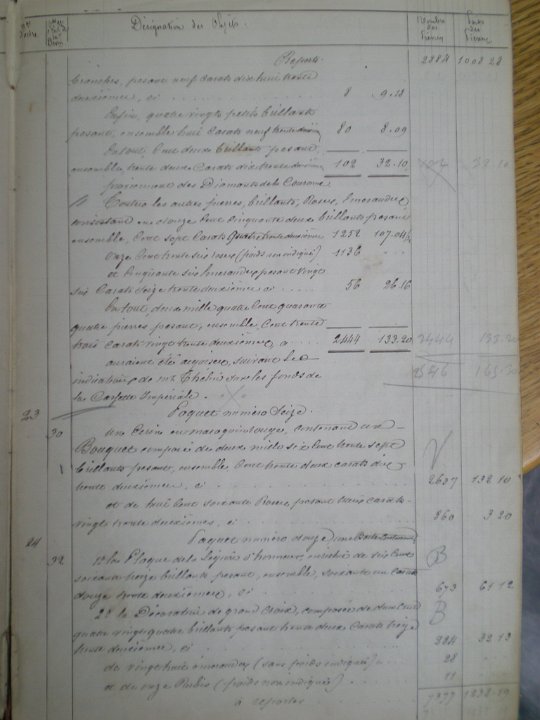 Désignation des Objets.
Nombre des Pierres
Poids des Pierres
Report. 2384 1008 28
blanches, pesant neuf carats dix huit trente
deuxièmes, ci 8 9.18
Enfin, quatre vingts petits brillants
pesant, ensemble huit Carats neuf trente deuxièmes 80 8.09
En tout, Cent deux brillants pesant,
ensemble trente deux Carats dix trente deuxièmes 102 32.10
provenant des Diamants de la Couronne
toutes les autres pierres, brillants, Roses, Emeraudes
consistant en douze Cent Cinquante deux brillants pesant
ensemble, Cent sept Carats quatre trente deuxièmes 1252 107.04
Onze Cent trente six roses (poids non indiqué) 1136
et Cinquante six émeraudes pesant vingt
six Carats seize trente deuxièmes ci 56 26.16
En tout, deux mille quatre Cent quarante
quatre pierres, pesant, ensemble, Cent trente
trois carats vingt trente deuxièmes, 2444 133.20 2444 133.20
auraient été acquises, suivant les
indications de Mr Thélin sur les fonds de 2546
la Cassette Impériale.
23 Paquet numéro Seize.
30 Un Ecrin en maroquin rouge, contenant un
Bouquet composé de deux mille six Cent trente sept
1 brillants pesant, ensemble Cent trente deux carats dix
trente deuxièmes, ci 2637 132 10
et de huit Cent soixante Roses, pesant trois carats
vingt trente deuxièmes, ci 860 3 20
24 Paquet numéro douze, une Boîte contenant
32 1° la Plaque de la Légion d'honneur, enrichie de six Cent
soixante treize brillants pesant, ensemble, soixante un Carats
douze trente deuxièmes, ci 673 61 12
2° la Décoration de grand Croix, composée de trois Cent
quatre vingt quatre brillants pesant trente deux Carats treize
trente deuxièmes, ci 384 32 13
de vingt huit émeraudes (sans poids indiqué) 28
et de onze Rubis (poids non indiqué) 11
à reporter